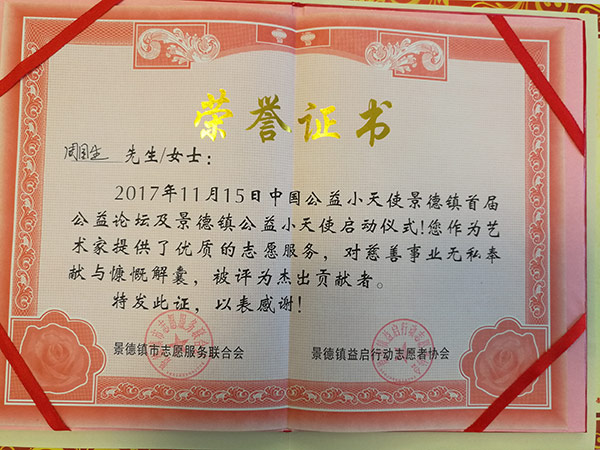 荣誉证书
周国生 先生/女士：
2017年11月15日中国公益小天使景德镇首届
公益论坛及景德镇公益小天使启动仪式!您作为艺
术家提供了优质的志愿服务，对慈善事业无私奉
献与慷慨解囊，被评为杰出贡献者。
特发此证，以表感谢!
景德镇市志愿服务联合会
景德镇益启行动志愿者协会